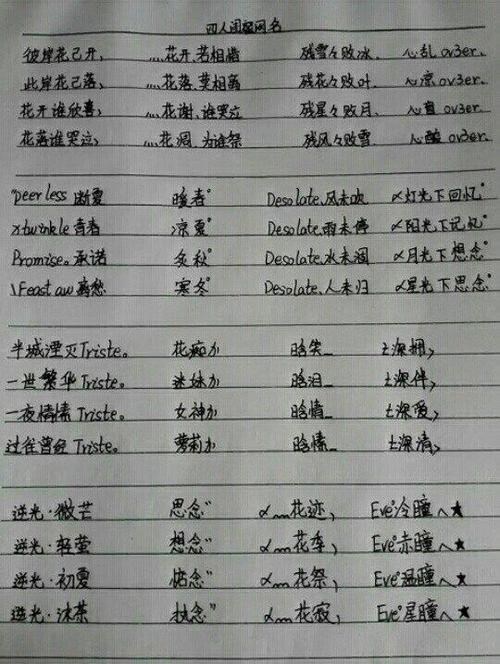 四人闺蜜网名
彼岸花已开, ﹏花开、若相惜 残雪々败冰. 心乱 ov3er.
此岸花已落, ﹏花落、莫相离 残花々败叶. 心凉 ov3er.
花开谁欣喜, ﹏花谢、谁哭泣 残星々败月. ov3er.
花落谁哭泣, ﹏花凋、为谁祭 残风々败雪 心酸 ov3er.
"peerless 断夏 暖春° Desolate、风未吹 〆灯光下回忆"
xtwinkle 青春 凉夏° Desolate、雨未停 〆阳光下记忆"
Promise。承诺 炙秋° Desolate、水未涸 〆月光下想念"
\Feast aw 离愁 寒冬° Desolate、人未归 〆星光下思念"
半城湮灭 Triste。 花痴か 晗笑_ 士深拥,
一世繁华 Triste。 迷妹か 晗泪_ 士深伴,
一夜情愫 Triste。 女神か 晗情_ 士深爱,
过往曾经 Triste。 萝莉か 晗愫_ 士深情,
逆光·微芒 思念" 〆﹏花迹, Eve°冷瞳へ★
逆光·轻萤 想念" 〆﹏花季, Eve°赤瞳へ★
逆光·初夏 惦念" 〆﹏花祭, Eve°温瞳へ★
逆光·沫茶 执念" 〆﹏花寂, Eve°星瞳へ★